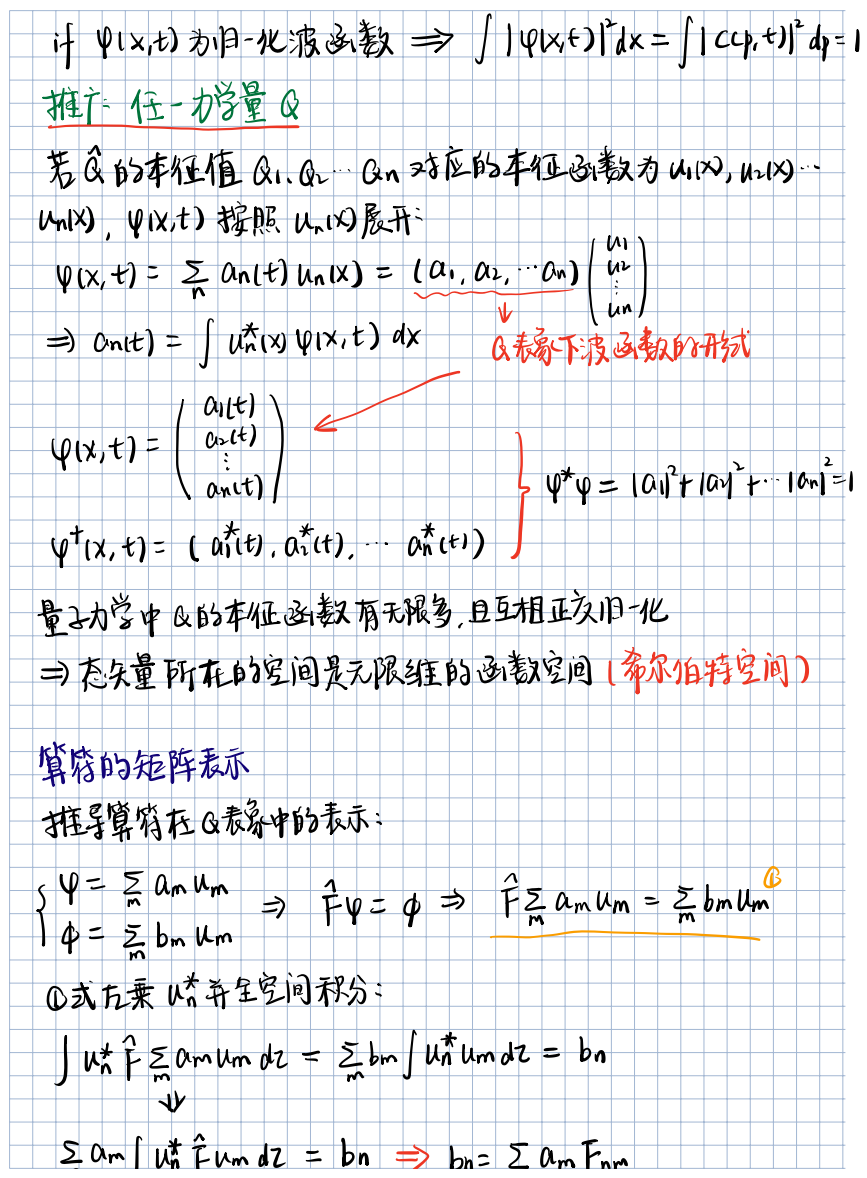 if ψ(x,t) 为归一化波函数 ⟹ ∫|ψ(x,t)|²dx = ∫|C(p,t)|²dp = 1
推广: 任一力学量 Q
若 Q̂ 的本征值 Q₁、Q₂ … Qn 对应的本征函数为 u₁(x), u₂(x)…
un(x), ψ(x,t) 按照 un(x) 展开:
ψ(x,t) = Σn an(t) un(x) = (a₁, a₂, … an) (u₁ u₂ ⋮ un)
⇒ an(t) = ∫ un*(x) ψ(x,t) dx
Q表象下波函数的形式
ψ(x,t) = (a₁(t) a₂(t) ⋮ an(t))
ψ*ψ = |a₁|² + |a₂|² + … |an|² = 1
ψ⁺(x,t) = (a₁*(t), a₂*(t), … an*(t))
量子力学中 Q的本征函数有无限多,且互相正交归一化
⇒ 态矢量所在的空间是无限维的函数空间 (希尔伯特空间)
算符的矩阵表示
推导算符在Q表象中的表示:
{ ψ = Σm am um
ϕ = Σm bm um ⇒ F̂ψ = ϕ ⇒ F̂Σm am um = Σm bm um ①
①式左乘 un* 并全空间积分:
∫ un* F̂ Σm am um dτ = Σm bm ∫ un* um dτ = bn
⇓
Σ am ∫ un* F̂ um dτ = bn ⇒ bn = Σ am Fnm